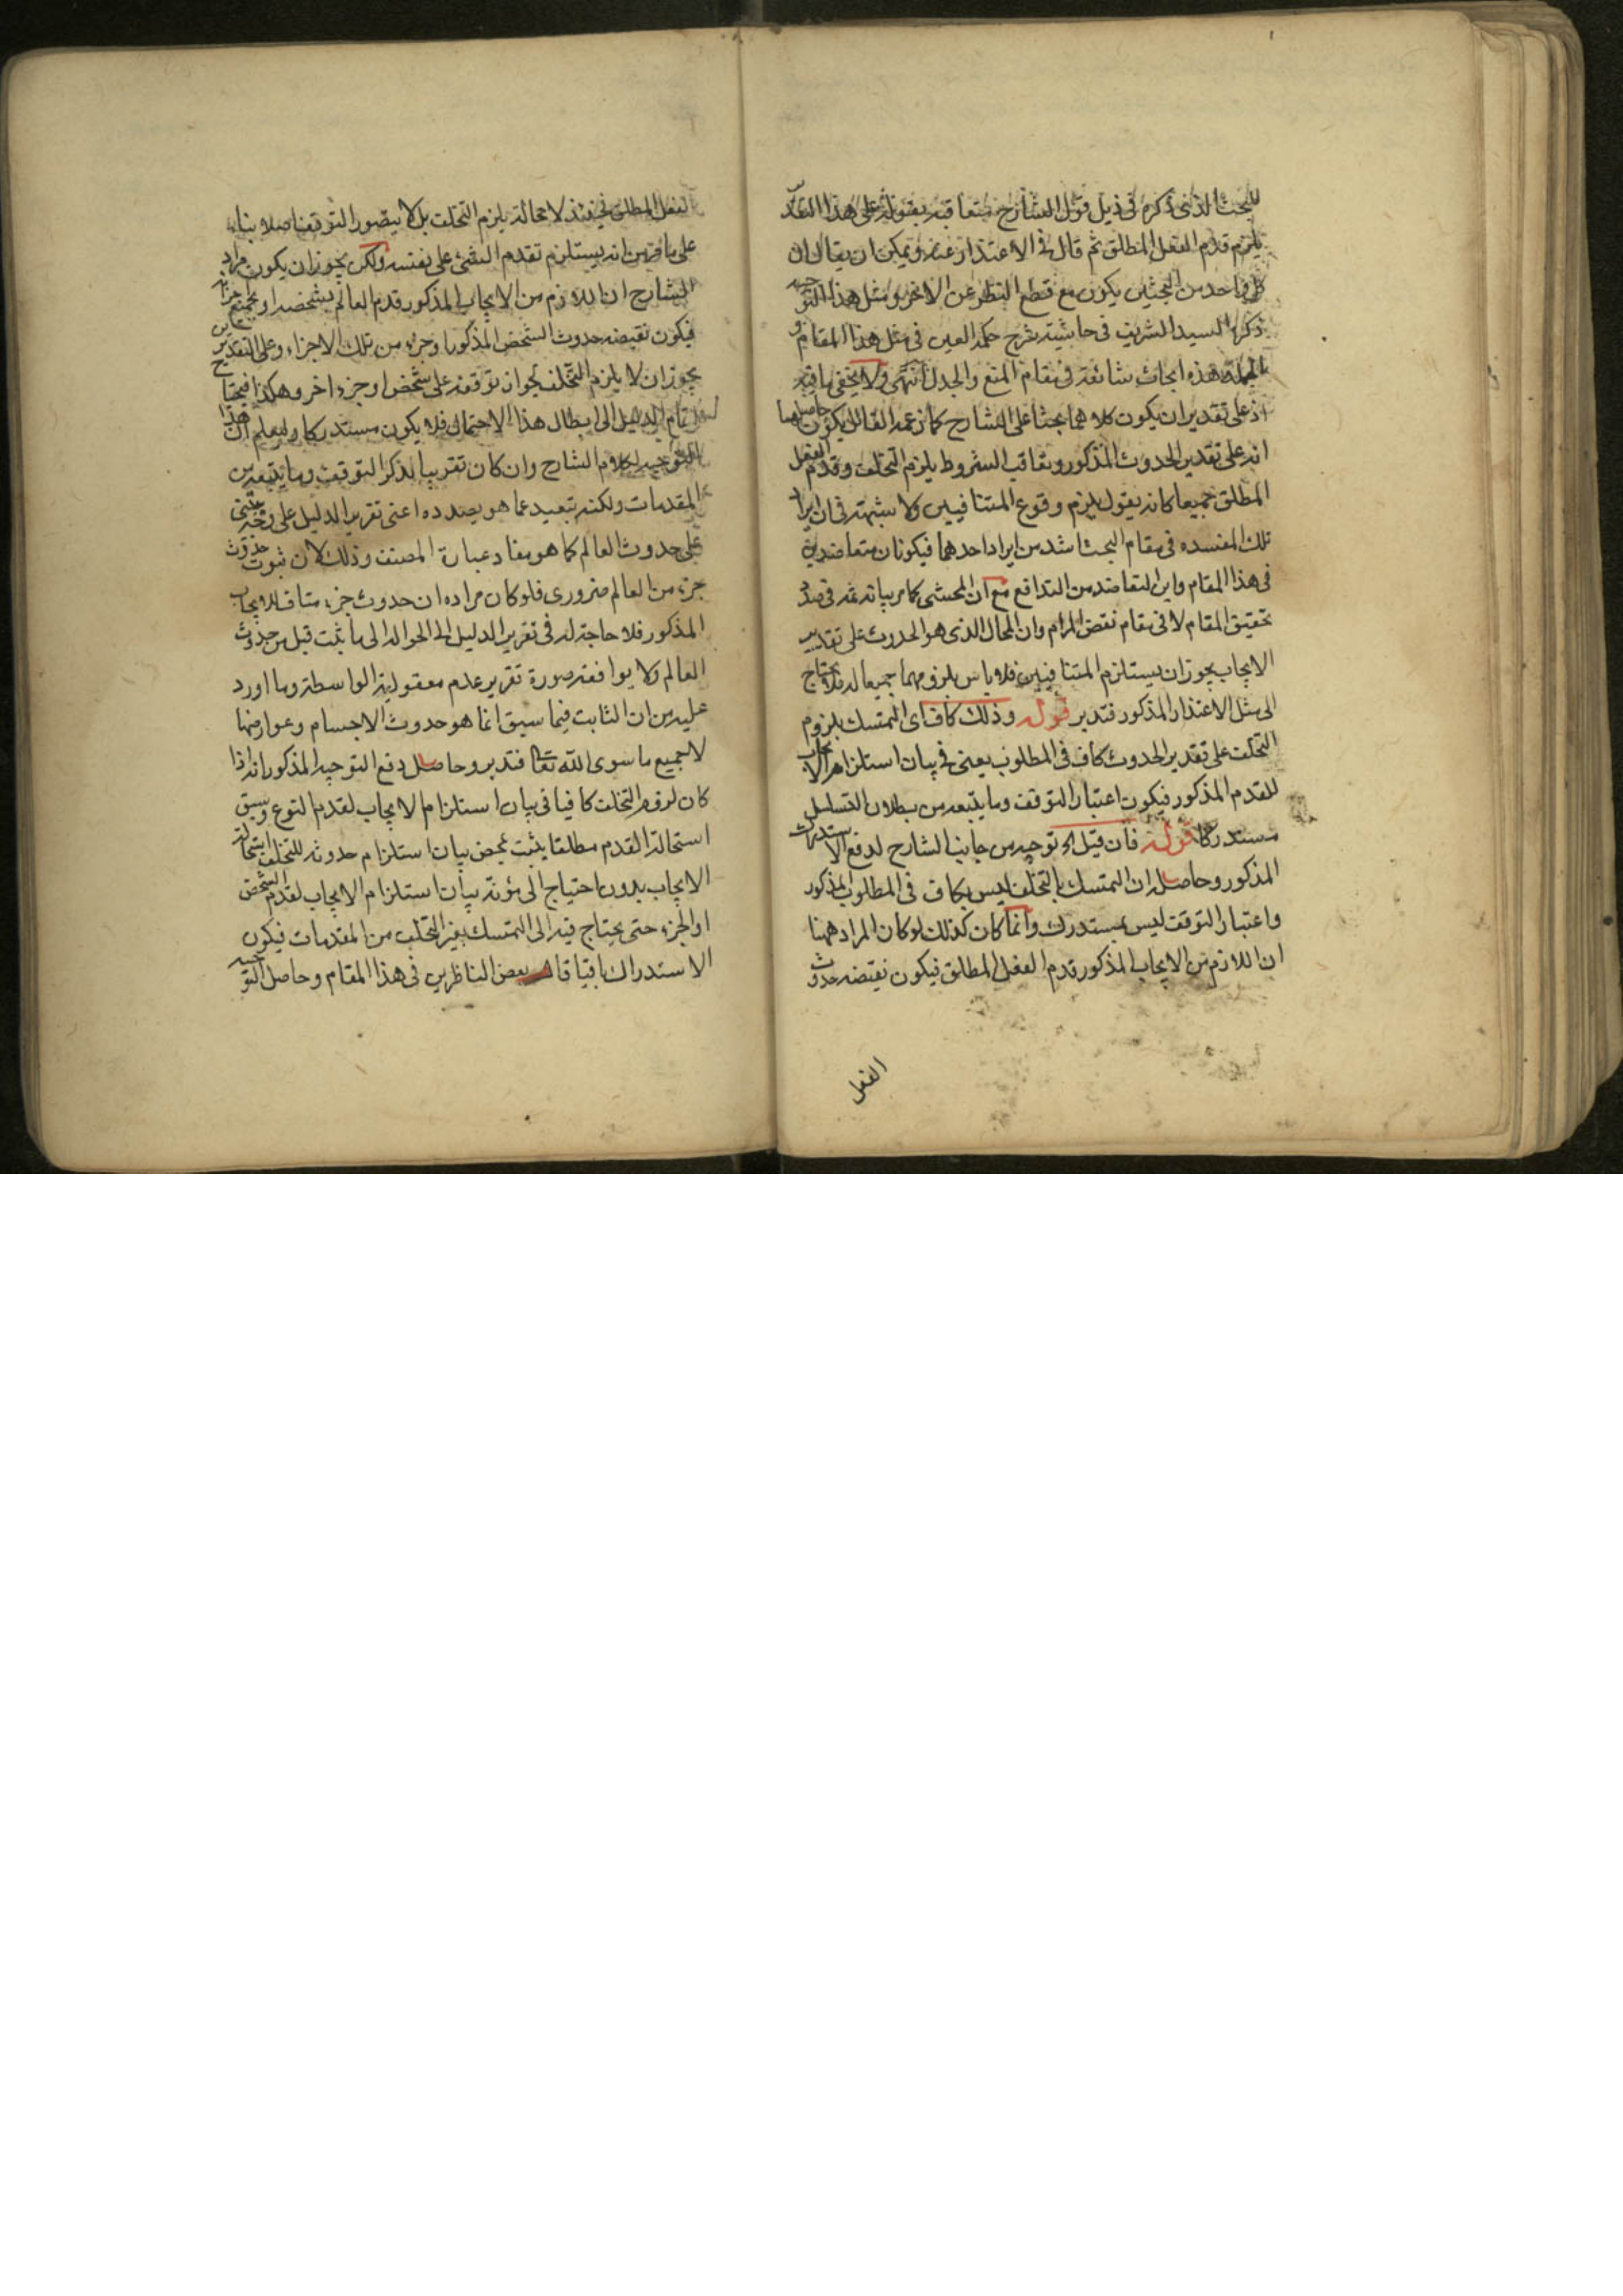 للبحث الذى ذكره فى ذيل قول الشارح متعاقبة بقوله على هذا التقدير
يلزم قدم الفعل المطلق ثم قال فى الاعتذار عنه ويمكن ان يقال ان
كل واحد من البحثين يكون مع قطع النظر عن الاخر ومثل هذا التوجيه
ذكره السيد الشريف فى حاشية شرح حكمة العين فى مثل هذا المقام و
بالجملة هذه ابحاث شائعة فى مقام المنع والجدل انتهى ولا يخفى ما فيه
اذ على تقدير ان يكون كلاهما بحثا على الشارح كما زعمه القائل يكون حاصلهما
انه على تقدير الحدوث المذكور وتعاقب الشروط يلزم التخلف وقدم الفعل
المطلق جميعا كانه يقول يلزم وقوع المتنافيين ولا شبهة فى ان ايراد
تلك المفسده فى مقام البحث اشد من ايراد احدهما فيكونان متعاضدين
فى هذا المقام واين التعاضد من التدافع مع ان المحشى كما مر بيانه ثمه فى صدد
تحقيق المقام لا فى مقام نقض المرام وان المحال الذى هو الحدوث على تقدير
الايجاب يجوز ان يستلزم المتنافيين فلا باس بلزومهما جميعا له فلا يحتاج
الى مثل الاعتذار المذكور فتدبر قوله وذلك كاف اى التمسك بلزوم
التخلف على تقدير الحدوث كاف فى المطلوب يعنى فى بيان استلزام الايجاب
للقدم المذكور فيكون اعتبار التوقف وما يتبعه من بطلان التسلسل
مستدركا قوله فان قيل اه توجيه من جانب الشارح لدفع الاستدراك
المذكور وحاصله ان التمسك بالتخلف ليس بكاف فى المطلوب المذكور
واعتبار التوقف ليس بمستدرك وانما كان كذلك لو كان المراد ههنا
ان اللازم من الايجاب المذكور قدم الفعل المطلق فيكون نقيضه حدوث
الفعل
الفعل المطلق فحينئذ لا محالة يلزم التخلف بل لا يتصور التوقف اصلا بناء
على ما قرر من انه يستلزم تقدم الشئ على نفسه ولكن يجوز ان يكون مراد
الشارح ان اللازم من الايجاب المذكور قدم العالم بشخصه او بجميع اجزائه
فيكون نقيضه حدوث الشخص المذكور او جزء من تلك الاجزاء وعلى التقديرين
يجوز ان لا يلزم التخلف لجواز توقفه على شخص او جزء اخر وهكذا فيحتاج
اتمام الدليل الى ابطال هذا الاحتمال فلا يكون مستدركا وليعلم ان هذا
التوجيه لكلام الشارح وان كان تقريبا لذكر التوقف وما يتبعه من
المقدمات ولكنه تبعيد عما هو بصدده اعنى تقرير الدليل على وجه يبتنى
على حدوث العالم كما هو مفاد عبارة المصنف وذلك لان ثبوت حدوث
جزء من العالم ضرورى فلو كان مراده ان حدوث جزء مناف للايجاب
المذكور فلا حاجة له فى تقرير الدليل الى الحوالة الى ما ثبت قبل من حدوث
العالم ولا يوافقه صورة تقرير عدم معقولية الواسطة وما اورد
عليه من ان الثابت فيما سبق انما هو حدوث الاجسام وعوارضها
لا جميع ما سوى الله تعا فتدبر وحاصل دفع التوجيه المذكور انه اذا
كان لزوم التخلف كافيا فى بيان استلزام الايجاب لقدم النوع وسبق
استحالة القدم مطلقا يثبت بمحض بيان استلزام حدوثه للتخلف استحالة
الايجاب بدون احتياج الى مؤنة بيان استلزام الايجاب لقدم الشخص
او الجزء حتى يحتاج فيه الى التمسك بغير التخلف من المقدمات فيكون
الاستدراك باقيا قال بعض الناظرين فى هذا المقام وحاصل التوجيه